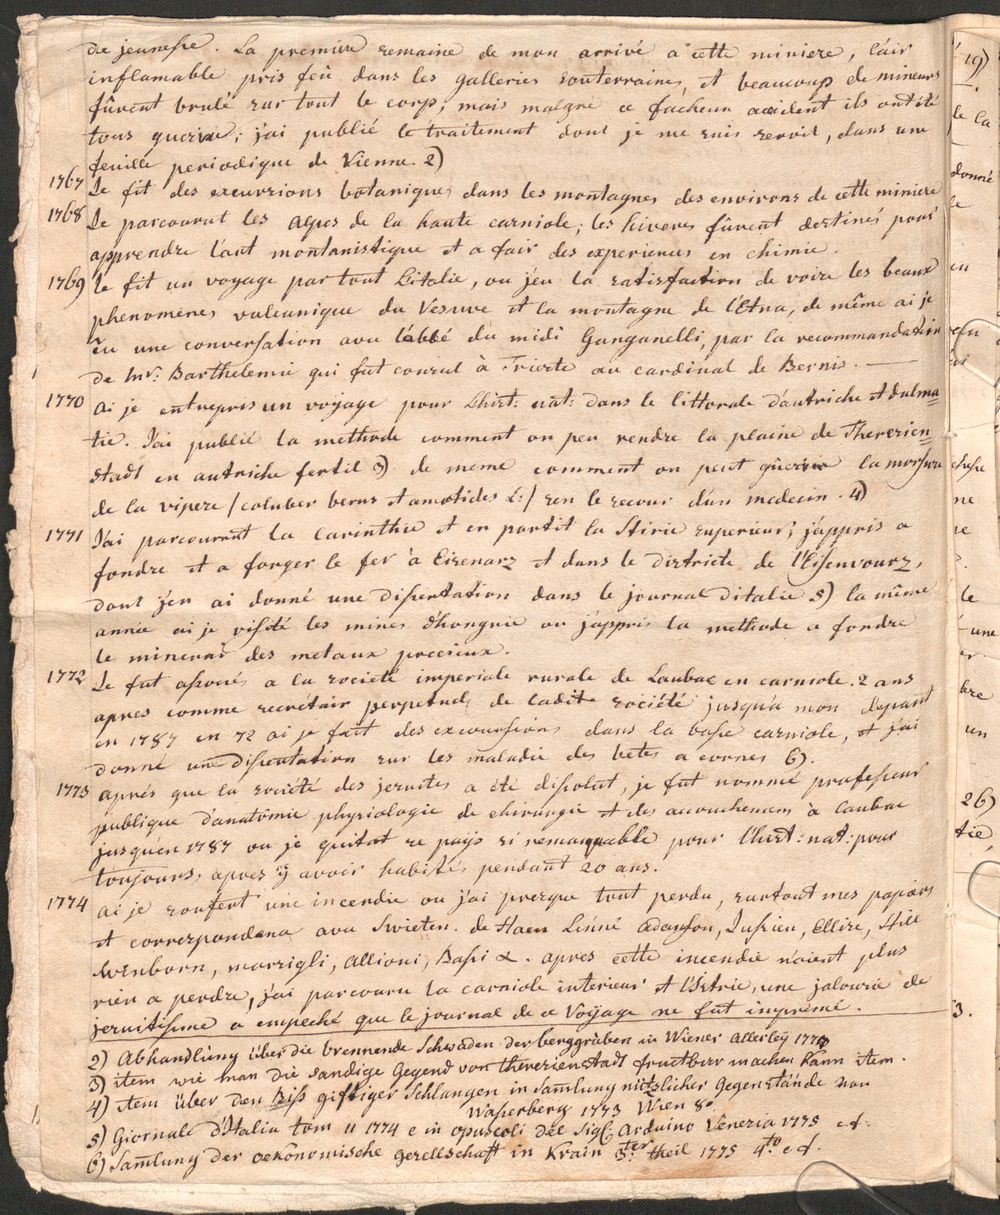 de jeunesse. La premiere semaine de mon arrivé a cette miniere, l'air
inflamable pris feû dans les galleries souterraines, et beaucoup de mineurs
fûrent brulé sur tout le corp, mais malgré ce facheux accident ils ont été
tous guerixe; j'ai publié le traitement dont je me suis servoit, dans une
feuille periodique de Vienne 2)
1767 Je fit des excursions botaniques dans les montagnes des environs de cette miniere
1768 Je parcourut les Alpes de la haute carniole; les hiveres fûrent destinés pour
apprendre l'art montanistique et a fair des experiences en chimie.
1769 Je fit un voyage par tout L'italie, ou j'eu la satisfaction de voire les beaux
phenomènes vulcanique du Vesuve et la montagne de l'Etna, de même ai je
eu une conversation avec l'abbé du midi Ganganelli, par la recommandation
de Mr: Barthelemie qui fut consul à Trieste au cardinal de Bernis. —
1770 ai je entrepris un voyage pour Lhist: nat: dans le littorale d'autriche et dalma=
tie. J'ai publié la methode comment on peu rendre la plaine de Therezien=
stadt en autriche fertil 3) de meme comment on peut guerir la morsure
de la vipere /coluber berus et amotides L:/ sen le secour d'un medecin. 4)
1771 J'ai parcourrut la Carinthie et en partit la Stirie superieur; j'appris a
fondre et a forger le fer à Eisenarz et dans le districte de l'Eisenwurz,
dont j'en ai donné une dissertation dans le journal d'italie 5) la même
année ai je visité les mines d'hongrie ou j'appris la methode a fondre
le minerai des metaux precieux.
1772 Je fut associés a la societé imperiale rurale de Laubac en carniole. 2 ans
apres comme secretair perpetuel de ladite société jusqu'a mon depart
en 1787 en 72 ai je fait des excoursions dans la basse carniole, et j'ai
donné une dissertation sur les maladie des betes a cornes 6).
1773 aprés que la société des jesuites a été dissolut, je fut nommé professeur
publique d'anatomie physiologie de chirurgie et des accouchemens à Laubac
jusqu'en 1787 ou je quitat ce pays si remarquable pour l'hist: nat: pour
toujours, apres y avoir habités pendant 20 ans.
1774 ai je soufert une incendie ou j'ai presque tout perdu, surtout mes papiers
et correspondence avec Swieten. de Haen Linné Adanson, Jusieu, Ellise, Hill
Wenborn, marsigli, Allioni, Bassi &. apres cette incendie n'aiant plus
rien a perdre, j'ai parcouru la carniole interieur et l'Istrie, une jalousie de
jesuitisme a empeché que le journal de ce Voyage ne fut imprémé.
2) Abhandlung über die brennende Schwaden der berggrüben in Wiener Allerleÿ 1772
3) item wie man die sandige Gegend von Therezienstadt fruchtbar machen kann item.
4) item über den Biss giftiger Schlangen in Samlung nützlicher Gegenstände von
Wasserberg 1773 Wien 8o
5) Giornale d'Italia tom 11 1774 e in opuscoli del Sigl: Arduino Venezia 1775 c f.
6) Samlung der oekonomische gesellschaft in Krain 3ter theil 1775 4to c f.
19)
le la
donné
26)
tie,
3.